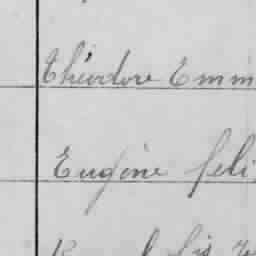 Théodore Emm
Eugène féli